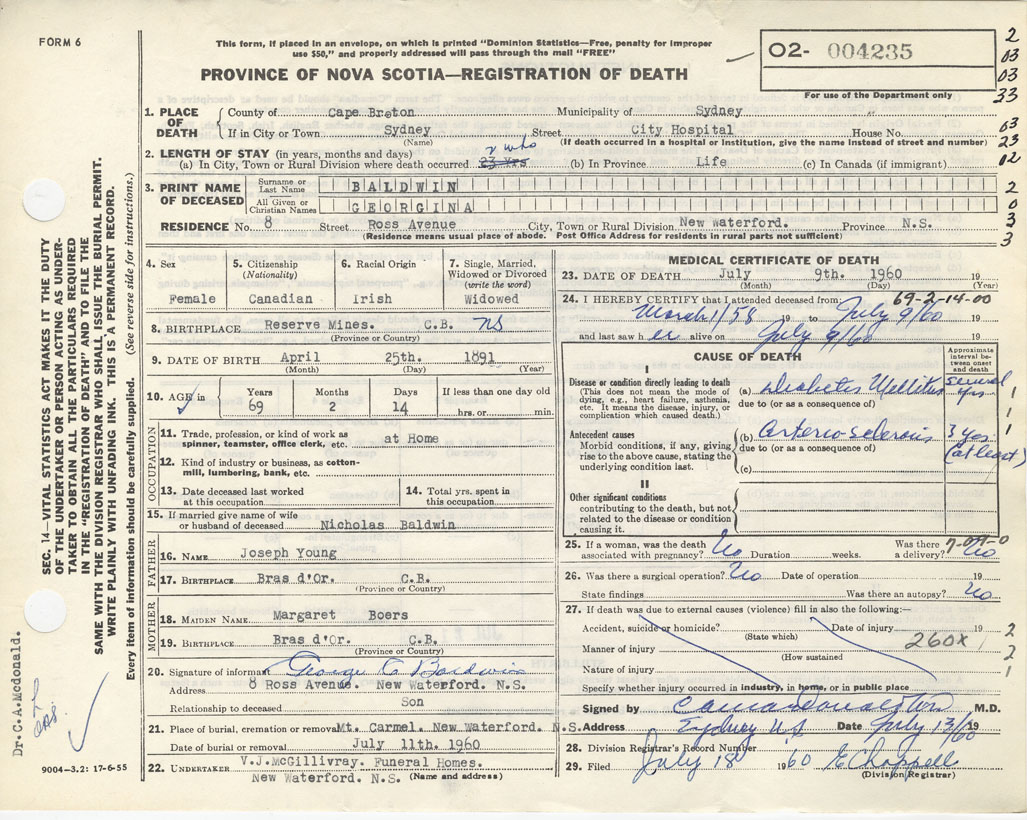 FORM 6
This form, if placed in an envelope, on which is printed "Dominion Statistics—Free, penalty for improper
use $50," and properly addressed will pass through the mail "FREE"
O2- 004235
For use of the Department only
PROVINCE OF NOVA SCOTIA—REGISTRATION OF DEATH
2
03
03
33
03
23
02
2
0
3
3
1. PLACE OF DEATH
County of Cape Breton Municipality of Sydney
If in City or Town Sydney Street City Hospital House No.
(Name) (If death occurred in a hospital or institution, give the name instead of street and number)
2. LENGTH OF STAY (in years, months and days)
(a) In City, Town or Rural Division where death occurred 23 Yrs (b) In Province Life (c) In Canada (if immigrant)
3. PRINT NAME OF DECEASED
Surname or Last Name BALDWIN
All Given or Christian Names GEORGINA
RESIDENCE No. 8 Street Ross Avenue City, Town or Rural Division New Waterford. Province N.S.
(Residence means usual place of abode. Post Office Address for residents in rural parts not sufficient)
4. Sex Female
5. Citizenship (Nationality) Canadian
6. Racial Origin Irish
7. Single, Married, Widowed or Divorced (write the word) Widowed
8. BIRTHPLACE Reserve Mines. C.B. NS
(Province or Country)
9. DATE OF BIRTH April 25th. 1891
(Month) (Day) (Year)
10. AGE in Years 69 Months 2 Days 14 If less than one day old hrs. or min.
OCCUPATION
11. Trade, profession, or kind of work as spinner, teamster, office clerk, etc. at Home
12. Kind of industry or business, as cotton-mill, lumbering, bank, etc.
13. Date deceased last worked at this occupation
14. Total yrs. spent in this occupation
15. If married give name of wife or husband of deceased Nicholas Baldwin
FATHER
16. NAME Joseph Young
17. BIRTHPLACE Bras d'Or. C.B.
(Province or Country)
MOTHER
18. MAIDEN NAME Margaret Boers
19. BIRTHPLACE Bras d'Or. C.B.
(Province or Country)
20. Signature of informant George C Baldwin
Address 8 Ross Avenue. New Waterford. N.S.
Relationship to deceased Son
21. Place of burial, cremation or removal Mt. Carmel. New Waterford. N.S.
Date of burial or removal July 11th. 1960
22. UNDERTAKER V.J.McGillivray. Funeral Homes.
New Waterford. N.S. (Name and address)
MEDICAL CERTIFICATE OF DEATH
23. DATE OF DEATH July 9th. 1960
(Month) (Day) (Year)
24. I HEREBY CERTIFY that I attended deceased from: 69-2-14-00
March 1/58 19 to July 9/60 19
and last saw h er alive on July 9/60 19
CAUSE OF DEATH
Approximate interval between onset and death
I
Disease or condition directly leading to death
(This does not mean the mode of dying, e.g., heart failure, asthenia, etc. It means the disease, injury, or complication which caused death.)
(a) Diabetes Mellitus several yrs
due to (or as a consequence of)
Antecedent causes
Morbid conditions, if any, giving rise to the above cause, stating the underlying condition last.
(b) Arteriosclerosis 3 yrs (at least)
due to (or as a consequence of)
(c)
II
Other significant conditions
contributing to the death, but not related to the disease or condition causing it.
1
1
1
25. If a woman, was the death associated with pregnancy? No Duration weeks. Was there a delivery? No
26. Was there a surgical operation? No Date of operation 19
State findings Was there an autopsy? No
27. If death was due to external causes (violence) fill in also the following:—
Accident, suicide or homicide? Date of injury 19
(State which)
Manner of injury 260X
(How sustained)
Nature of injury
Specify whether injury occurred in industry, in home, or in public place
2
2
1
Signed by M.D.
Address Sydney N.S. Date July 13/60 19
28. Division Registrar's Record Number
29. Filed July 18 1960 E Chappell
(Division Registrar)
SEC. 14—VITAL STATISTICS ACT MAKES IT THE DUTY
OF THE UNDERTAKER OR PERSON ACTING AS UNDER-
TAKER TO OBTAIN ALL THE PARTICULARS REQUIRED
IN THE "REGISTRATION OF DEATH" AND FILE THE
SAME WITH THE DIVISION REGISTRAR WHO SHALL ISSUE THE BURIAL PERMIT.
WRITE PLAINLY WITH UNFADING INK. THIS IS A PERMANENT RECORD.
Every item of information should be carefully supplied. (See reverse side for instructions.)
Dr. C.A. Mcdonald.
9004-3.2: 17-6-55